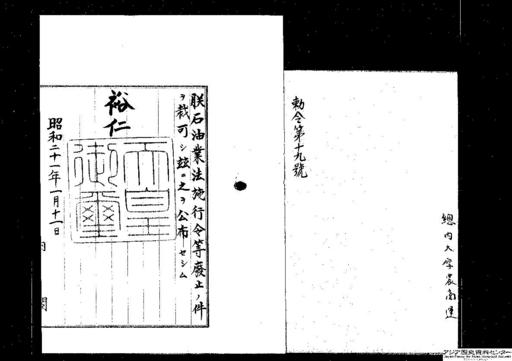 勅令第十九號
總内大字農商運
朕石油業法施行令等廢止ノ件
ヲ裁可シ茲ニ之ヲ公布セシム
裕仁
天皇御璽
昭和二十一年一月十一日
内閣
アジア歴史資料センター